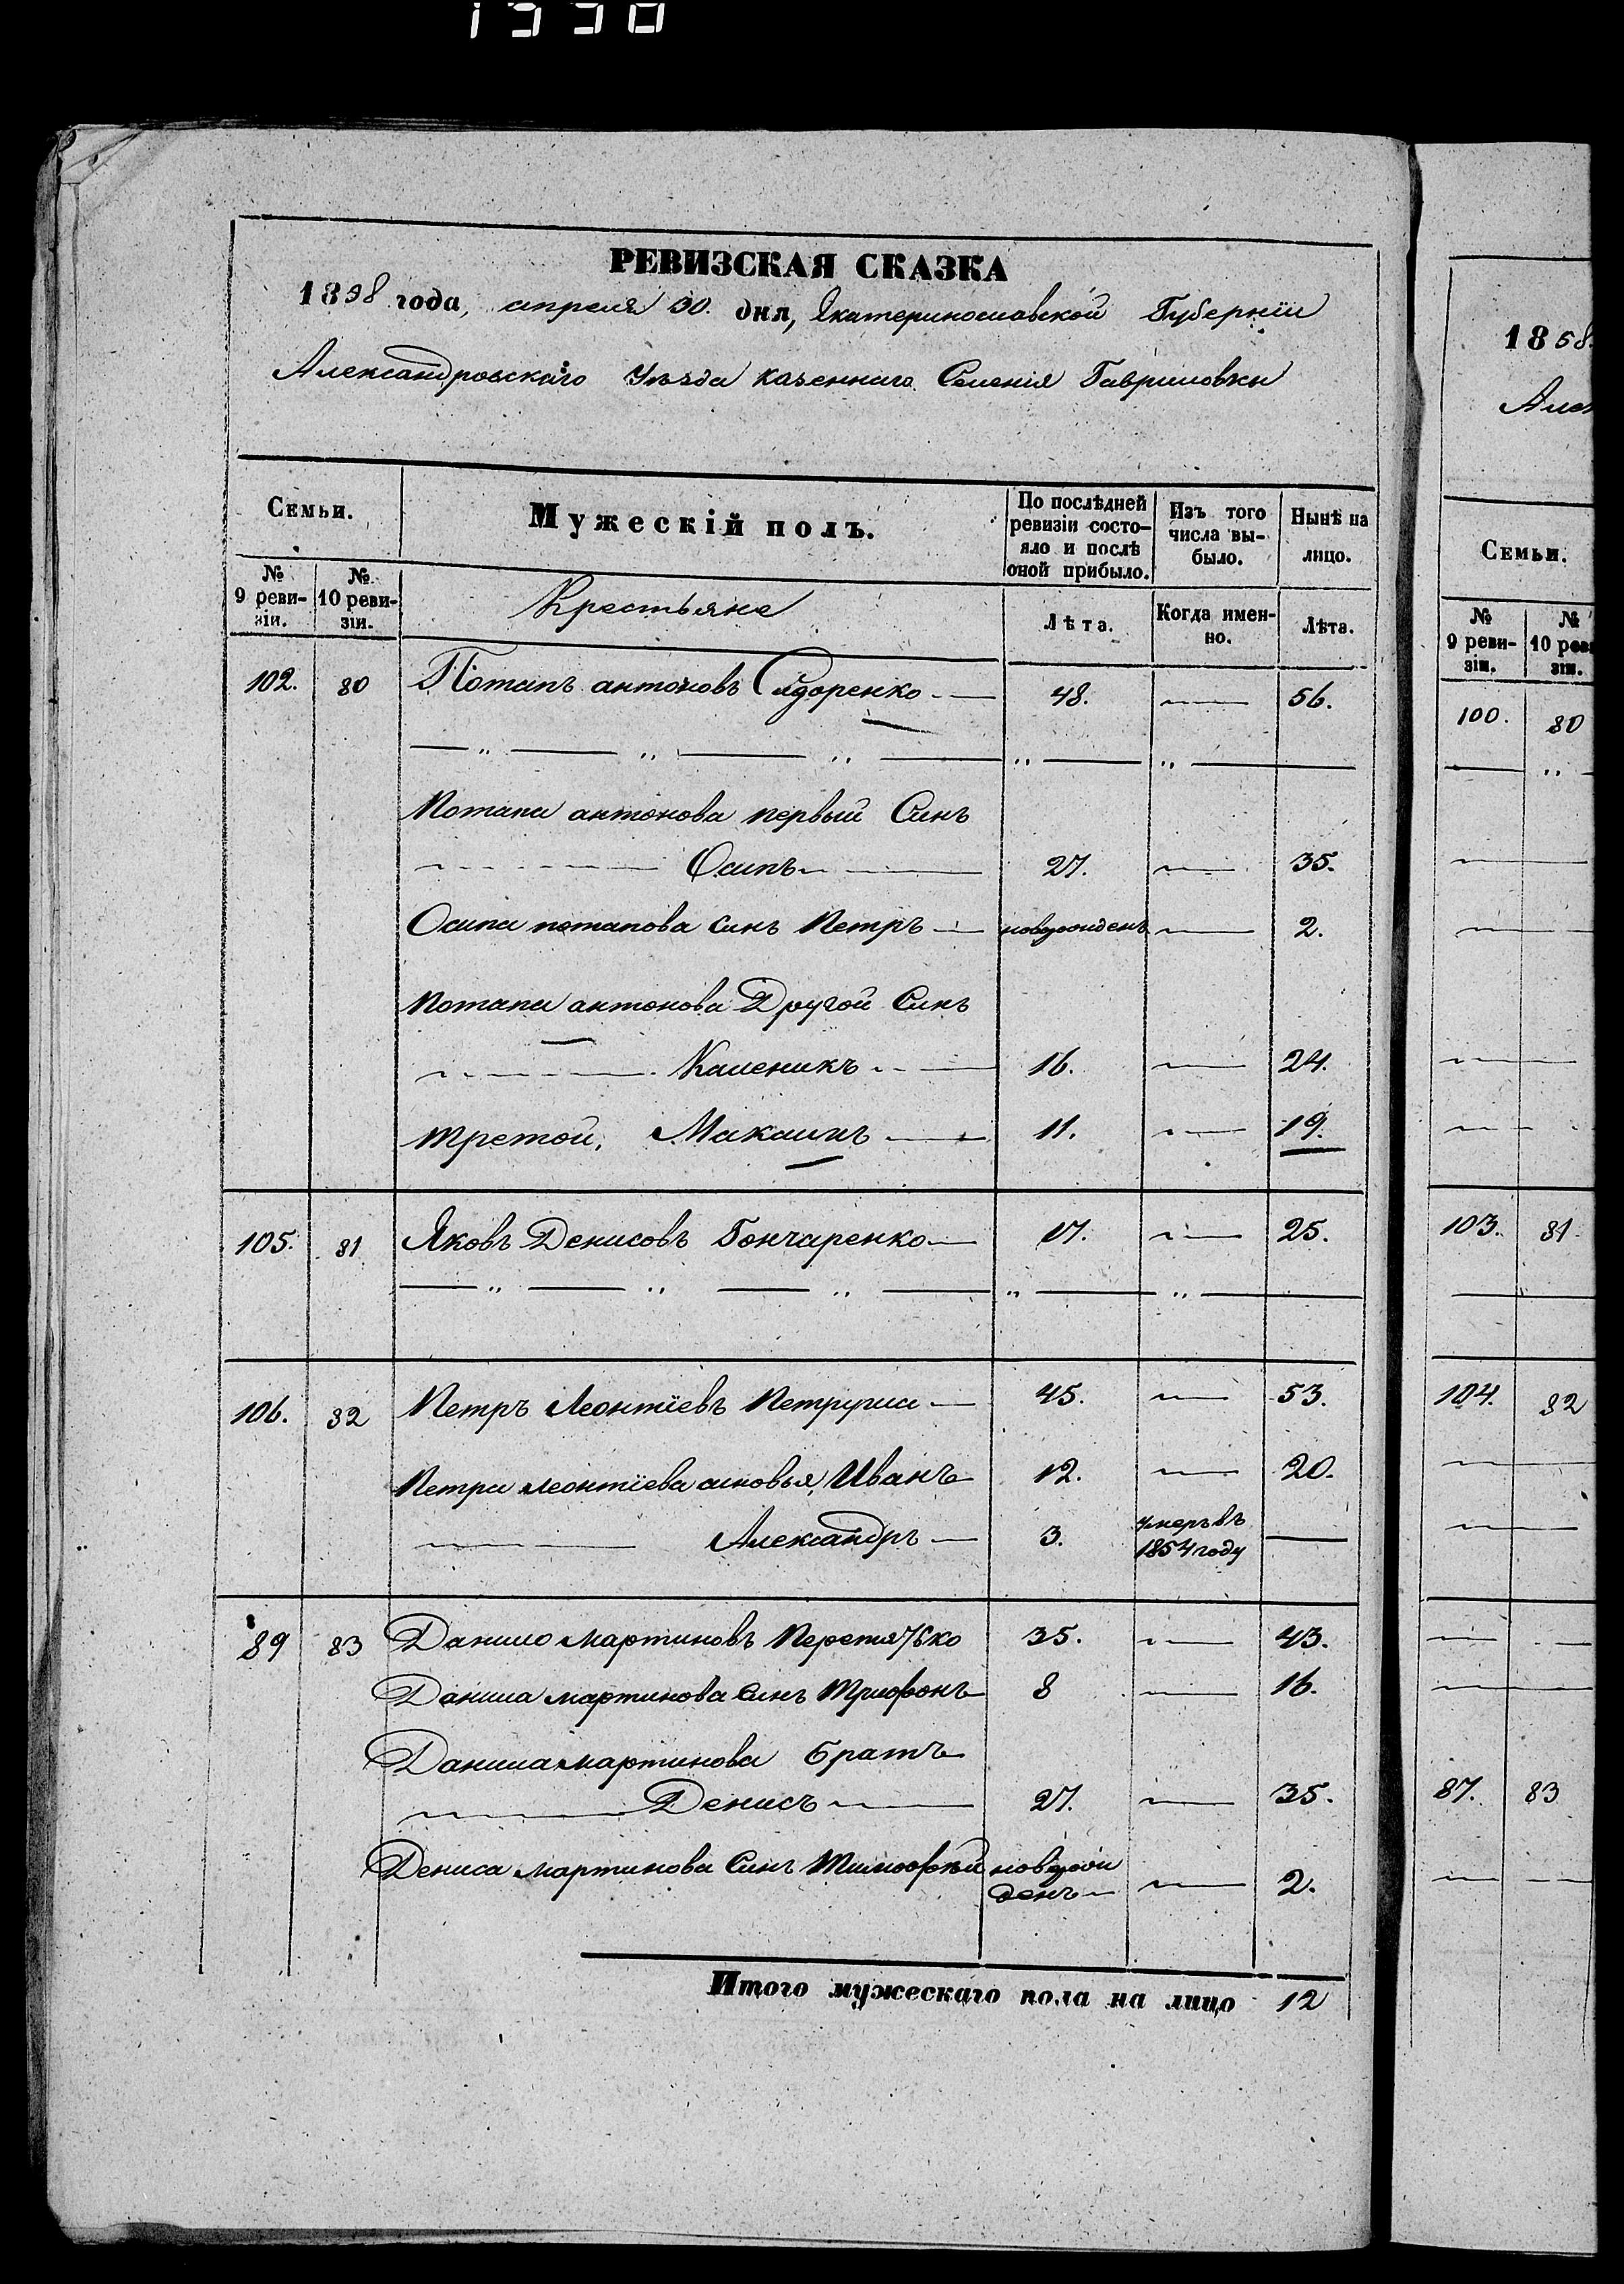 1550
РЕВИЗСКАЯ СКАЗКА
1858 года, апреля 30. дня, Екатеринославской Губерніи
Александровскаго Уѣзда казеннаго Селенія Гавриловки
Семьи.
Мужескій полъ.
По послѣдней ревизіи состо-
яло и послѣ
оной прибыло.
Изъ того
числа вы-
было.
Нынѣ на
лицо.
№
9 реви-
зіи.
№
10 реви-
зіи.
Крестьяне
Лѣта.
Когда имен-
но.
Лѣта.
102. 80 Потапъ антоновъ Сидоренко 48. 56.
Потапа антонова первый Синъ
Осипъ 27. 35.
Осипа потапова синъ Петръ новорожденъ 2.
Потапа антонова Другой Синъ
Каленикъ 16. 24.
третой, Макаимъ 11. 19.
105. 81 Яковъ Денисовъ Гончаренко 17. 25.
106. 82 Петръ Леонтіевъ 45. 53.
Петра леонтіева синовья, Иванъ 12. 20.
Александръ 3. умеръ въ
1854 году
89 83 Данило мартиновъ Перетятько 35. 43.
Данила мартинова синъ Трифонъ 8 16.
Данила мартинова братъ
Денисъ 27. 35.
Дениса мартинова Синъ Тимофѣй новорож
денъ 2.
Итого мужескаго пола на лицо 12
1858.
Алек
Семьи.
№
9 реви-
зіи.
№
10 реви
зіи.
100. 80
103. 81
104. 82
87. 83